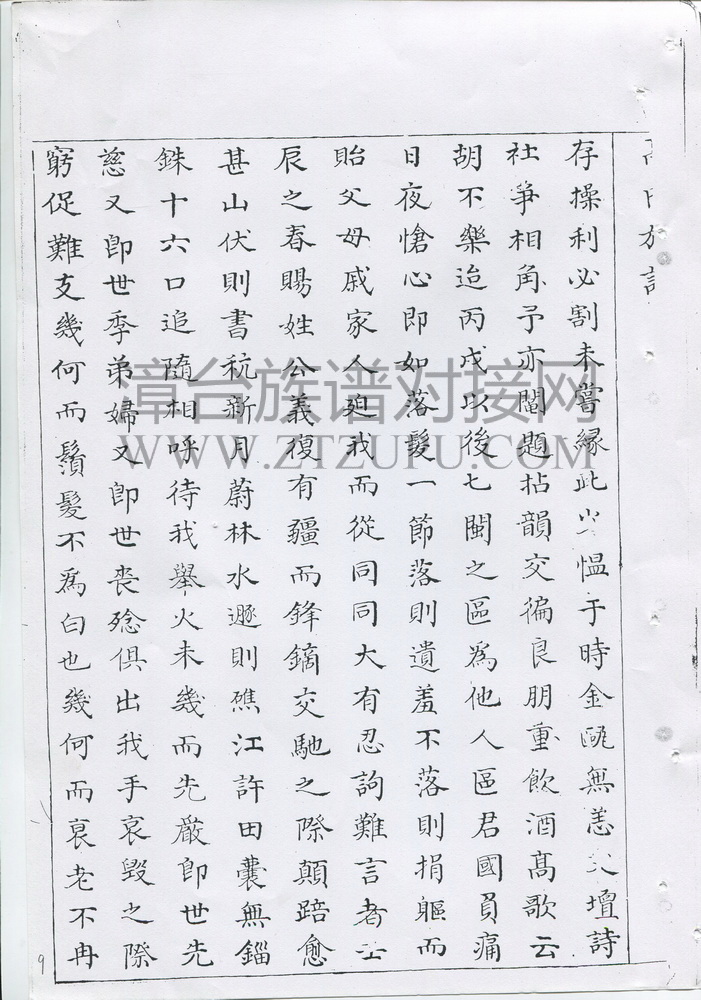 高氏族譜
存操利必割未嘗緣此少慍于時金甌無恙文壇詩
社爭相角予亦鬮題拈韻交徧良朋重飲酒高歌云
胡不樂迨丙戌以後七閩之區為他人區君國負痛
日夜愴心即如落髮一節落則遺羞不落則捐軀而
貽父母戚家人廹我而從同同大有忍訽難言者壬
辰之春賜姓公義復有疆而鋒鏑交馳之際顛踣愈
甚山伏則書秔新月蔚林水遯則礁江許田囊無錙
銖十六口追隨相呼待我舉火未幾而先嚴卽世先
慈又卽世季弟婦又卽世喪殮俱出我手哀毀之際
窮促難支幾何而鬚髮不為白也幾何而哀老不冉
9
漳台族谱对接网
WWW.ZTZUPU.COM